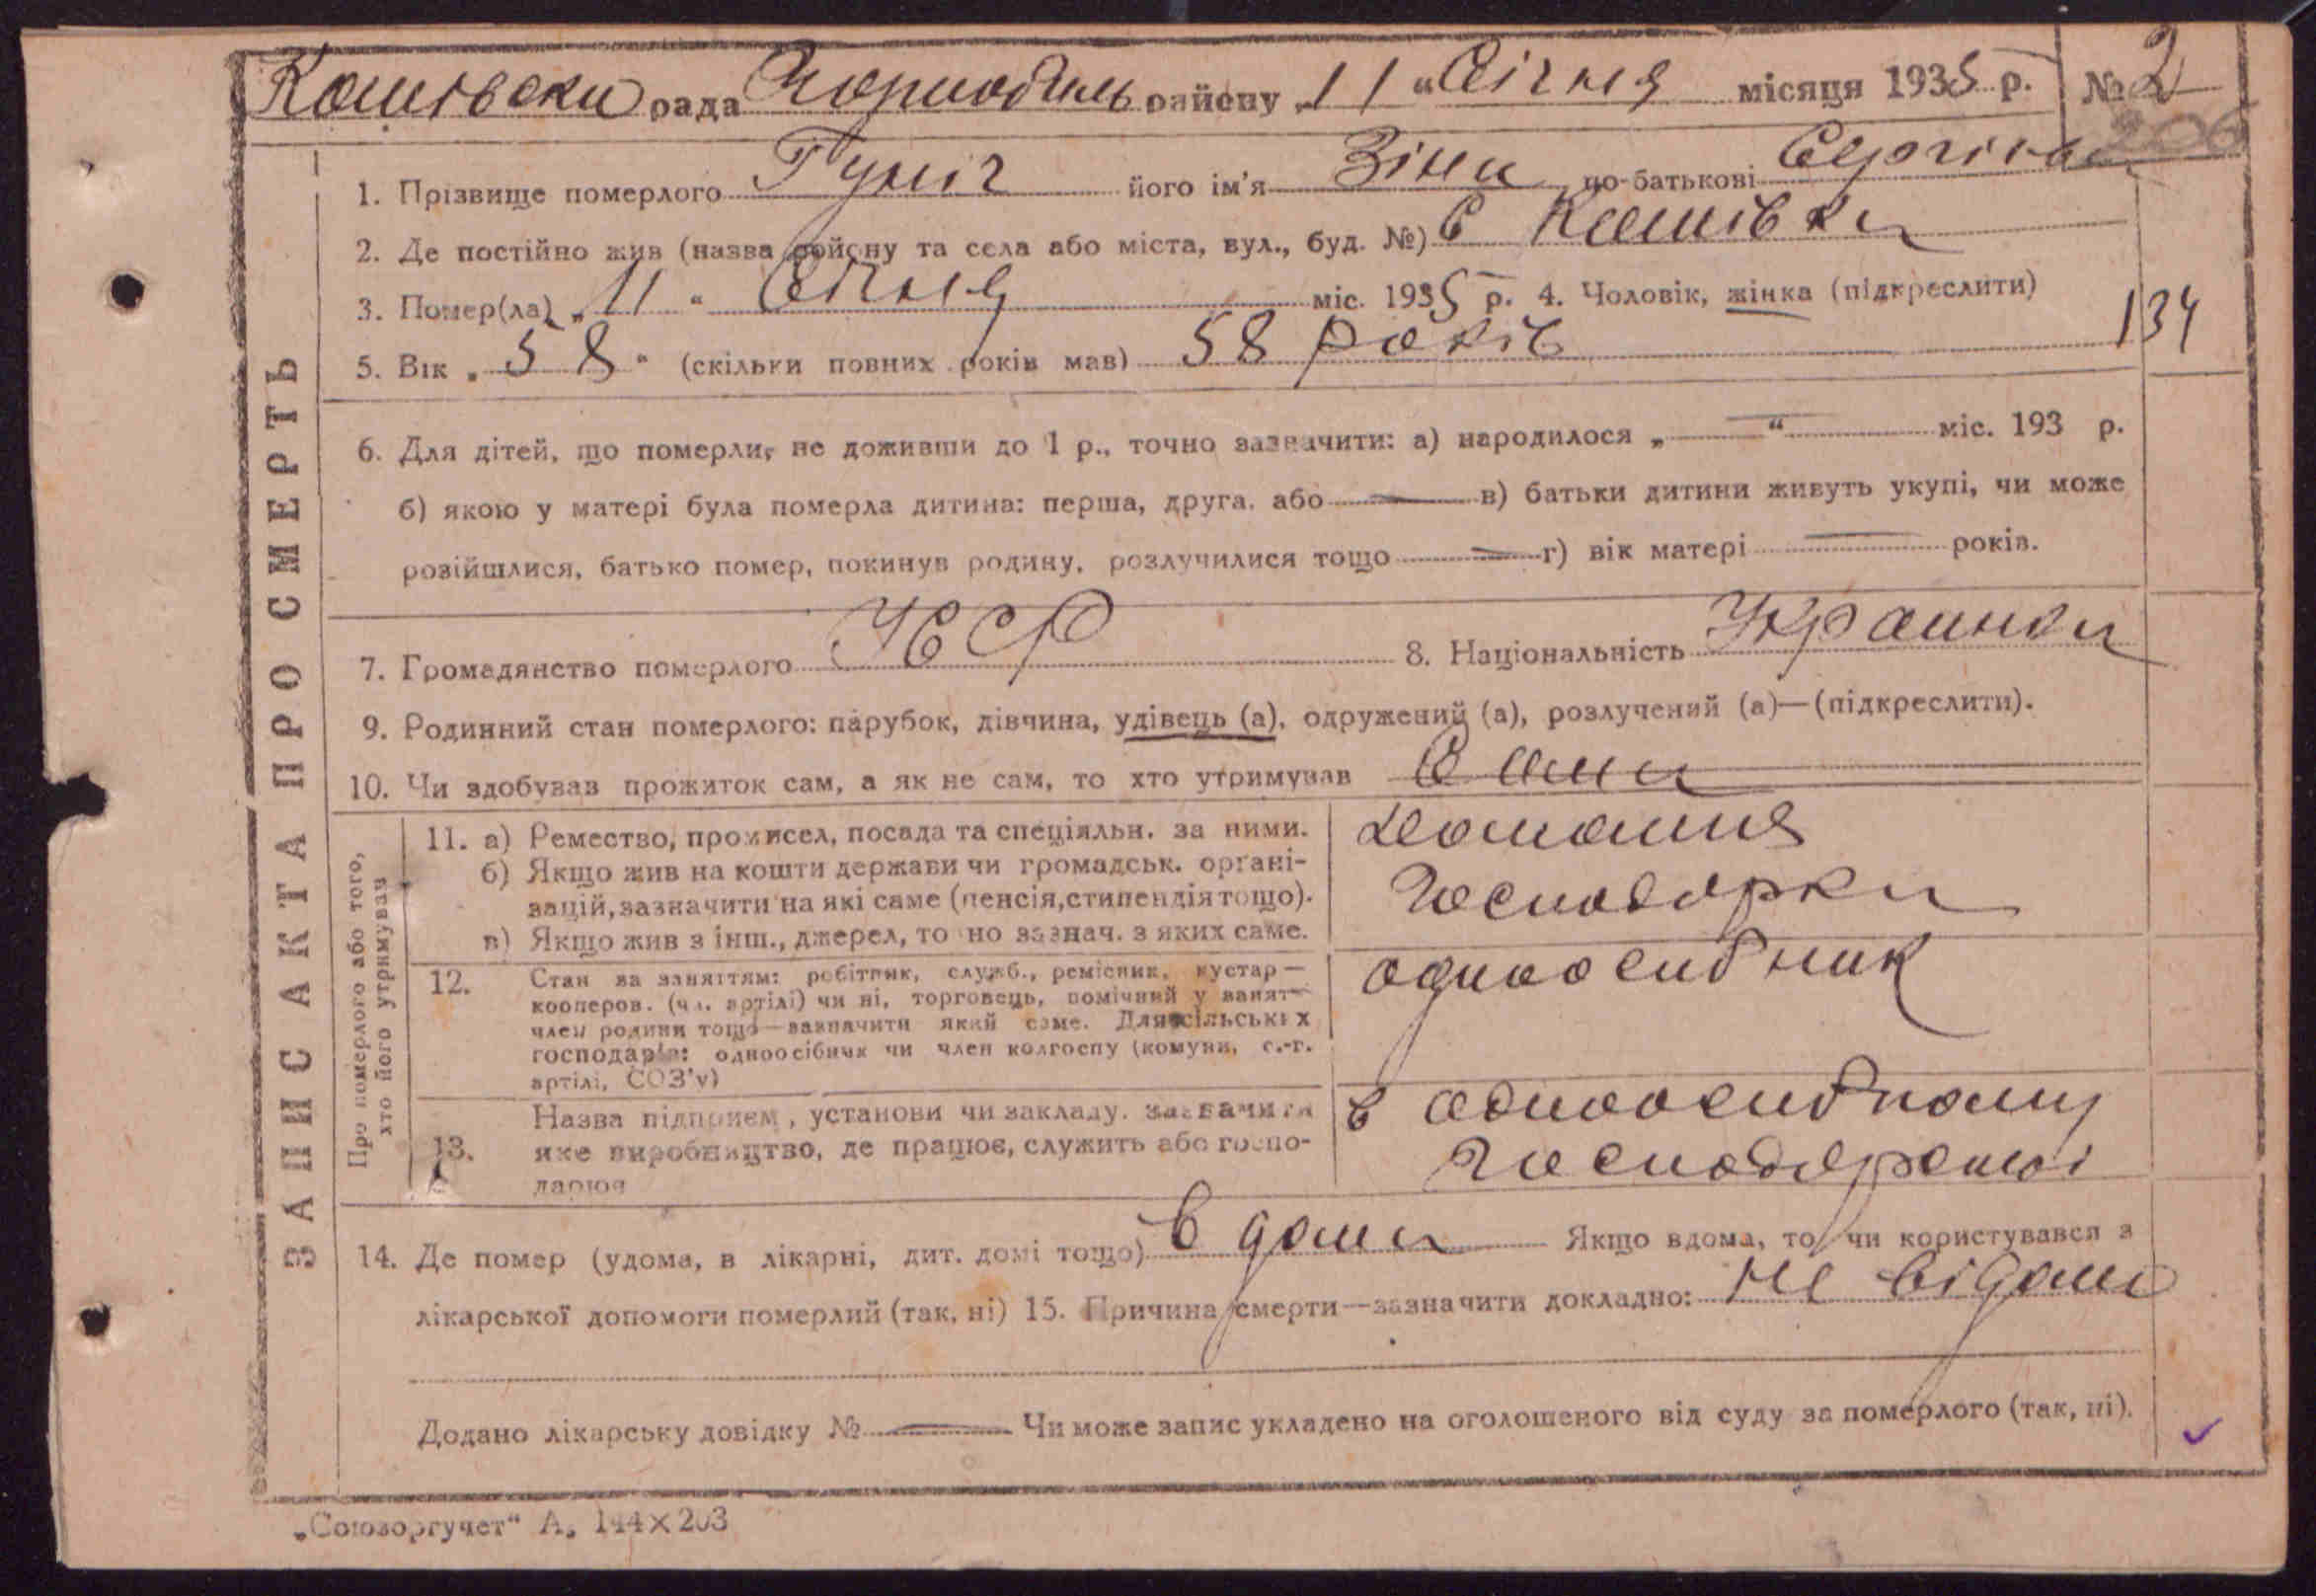 Кошівска рада Чорнобиль району „11 “ Січня місяця 1935 р. № 2
206
1. Прізвище померлого Гуніч його ім'я Зіна по-батькові
2. Де постійно жив (назва району та села або міста, вул., буд. №) С Кошівка
3. Помер(ла) „11 “ Січня міс. 1935 р. 4. Чоловік, жінка (підкреслити)
134
5. Вік „ 58 “ (скільки повних років мав) 58 років
6. Для дітей, що померли, не доживши до 1 р., точно зазначити: а) народилося „ — “ міс. 193 р.
б) якою у матері була померла дитина: перша, друга. або — в) батьки дитини живуть укупі, чи може
розійшлися, батько помер, покинув родину, розлучилися тощо — г) вік матері — років.
7. Громадянство померлого УСРР 8. Національність Українка
9. Родинний стан померлого: парубок, дівчина, удівець (а), одружений (а), розлучений (а)—(підкреслити).
10. Чи здобував прожиток сам, а як не сам, то хто утримував Сама
ЗАПИС АКТА ПРО СМЕРТЬ
Про померлого або того,
хто його утримував
11. а) Ремество, промисел, посада та спеціяльн. за ними.
б) Якщо жив на кошти держави чи громадськ. органі-
зацій, зазначити на які саме (пенсія, стипендія тощо).
в) Якщо жив з інш., джерел, то но зазнач. з яких саме.
домашня
господарка
12. Стан за заняттям: робітник, служб., ремісник, кустар—
кооперов. (чл. артілі) чи ні, торговець, помічний у занят—
член родини тощо—зазначити який саме. Для сільських
господарів: одноосібник чи член колгоспу (комуни, с.-г.
артілі, СОЗ'у)
одноосибник
13. Назва підприєм, установи чи закладу. зазначити
яке виробництво, де працює, служить або госпо-
дарює
в одноосибному
господарстві
14. Де помер (удома, в лікарні, дит. домі тощо) в дома Якщо вдома, то чи користувався з
лікарської допомоги померлий (так, ні) 15. Причина смерти—зазначити докладно: не відомо
Додано лікарську довідку № — Чи може запис укладено на оголошеного від суду за померлого (так, ні).
„Союзоргучет“ А₅ 144×203